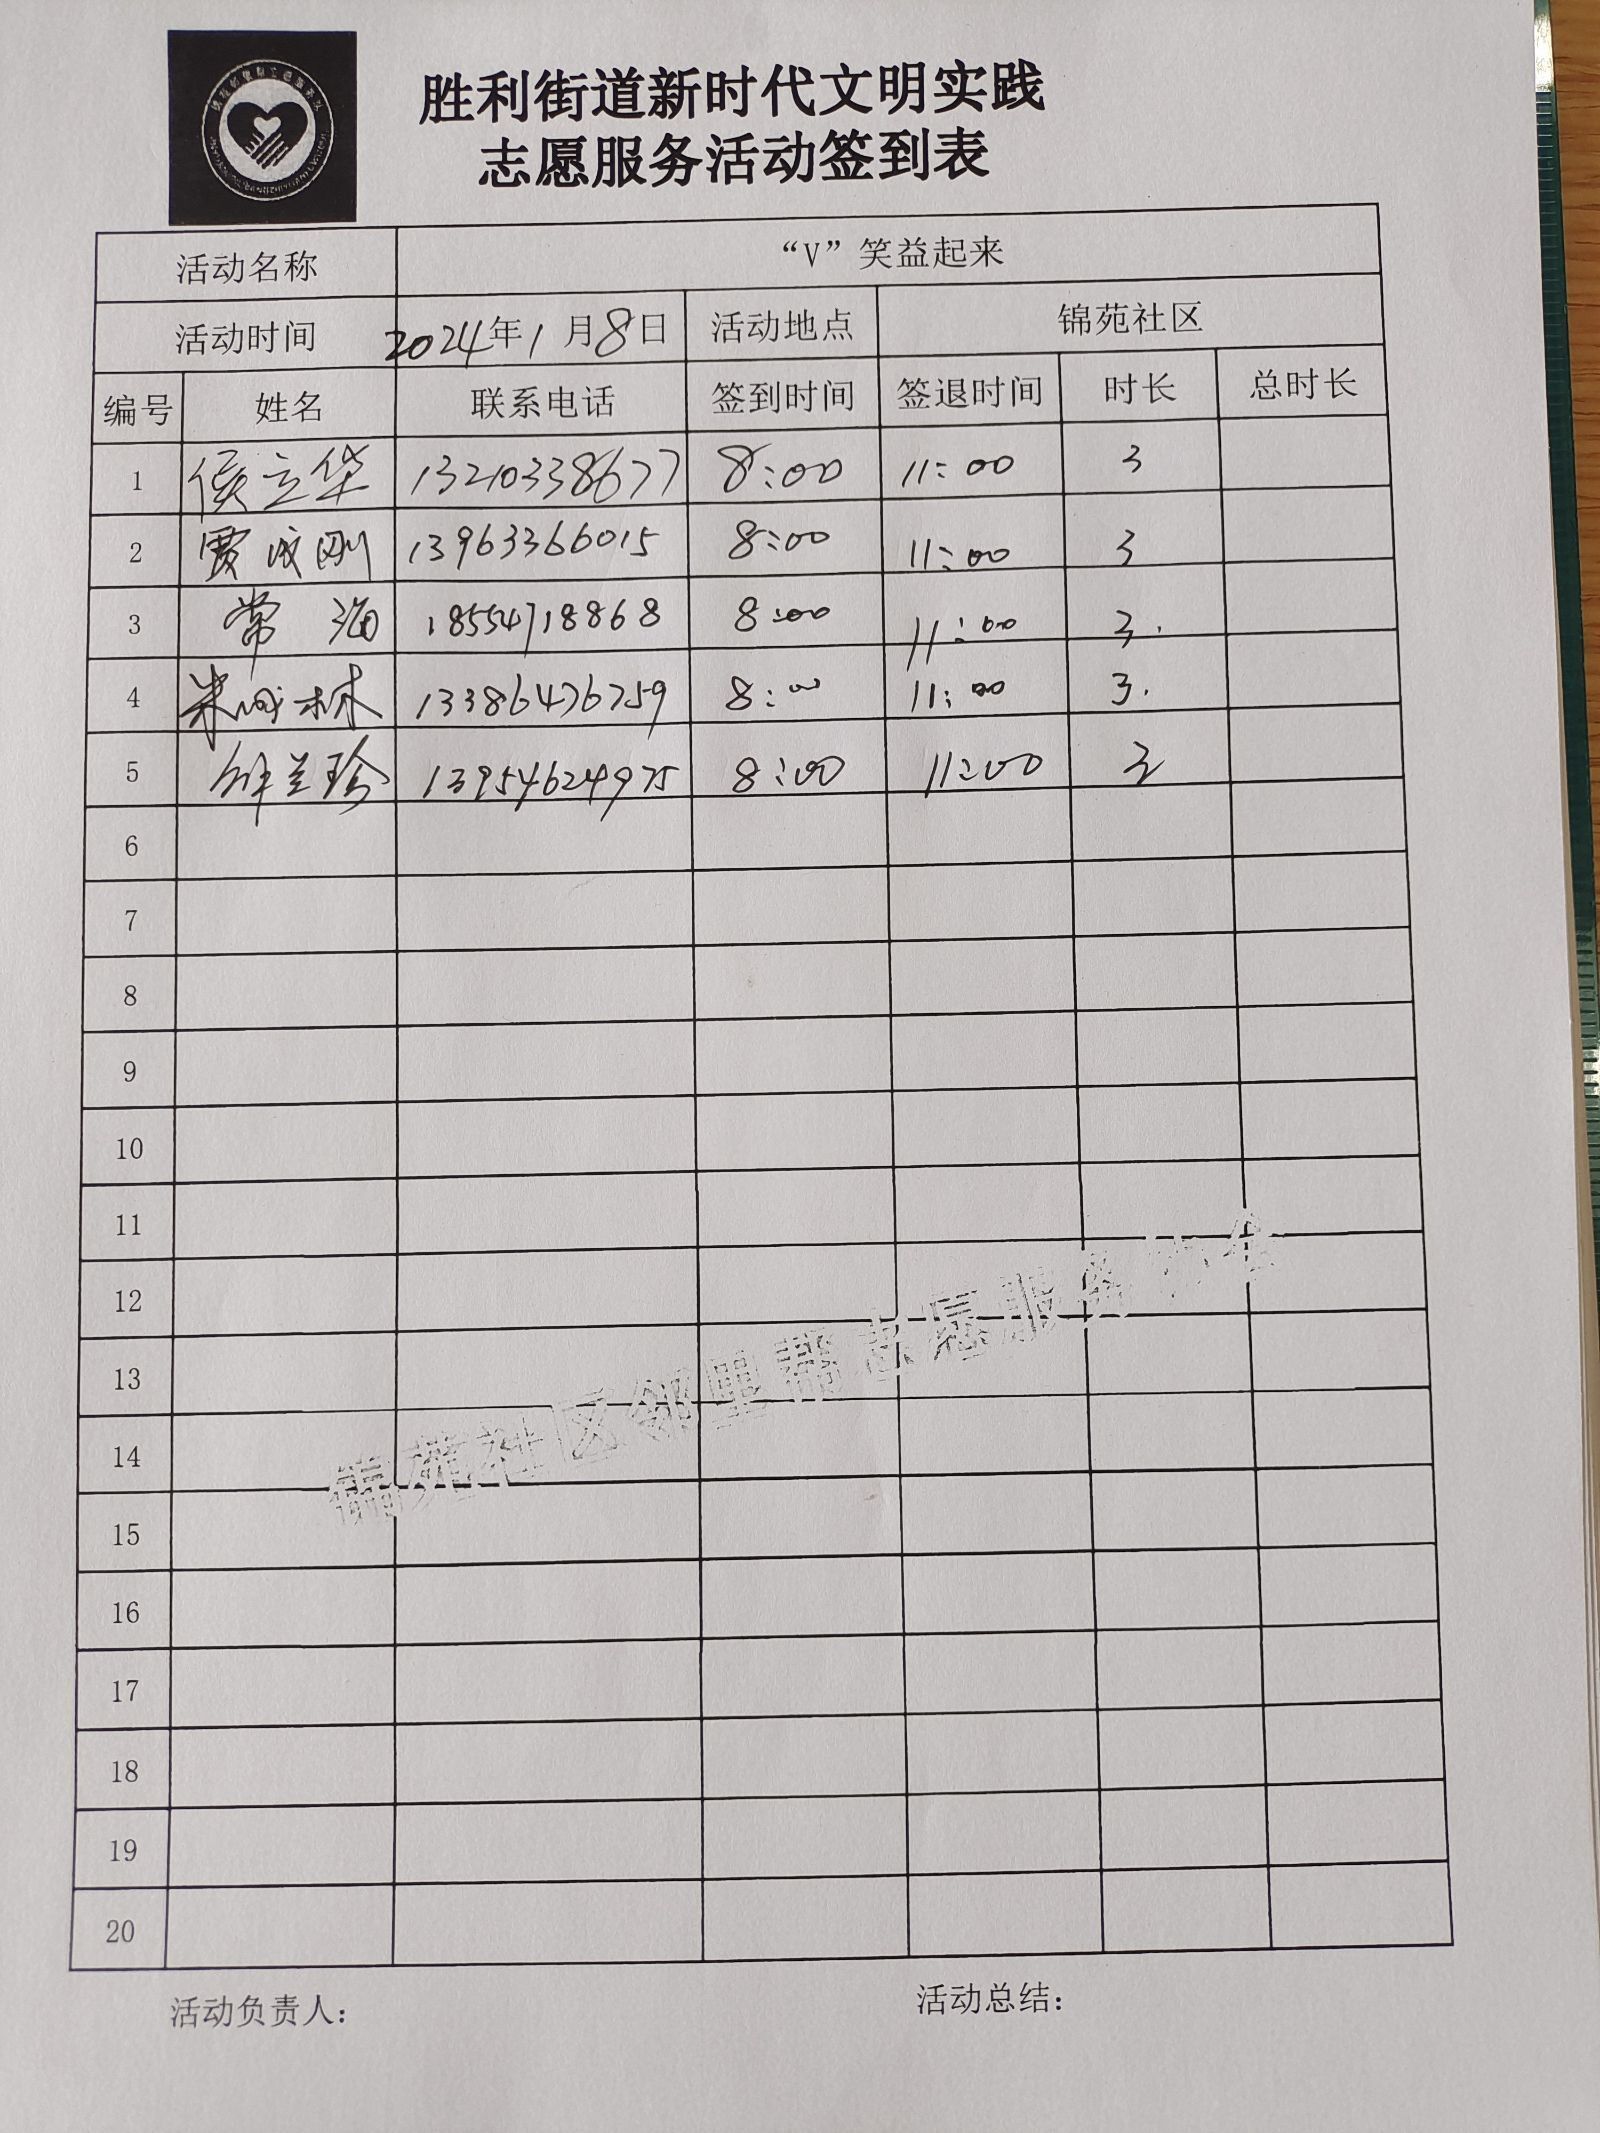 胜利街道新时代文明实践
志愿服务活动签到表
活动名称 “V”笑益起来
活动时间 2024年1月8日 活动地点 锦苑社区
编号 姓名 联系电话 签到时间 签退时间 时长 总时长
1 侯立华 13210338677 8:00 11:00 3
2 贾成刚 13963366015 8:00 11:00 3
3 常海 18554718868 8:00 11:00 3.
4 林 13386476759 8:00 11:00 3.
5 兰珍 13954624975 8:00 11:00 3
6
7
8
9
10
11
12
13
14
15
16
17
18
19
20
锦苑社区邻里帮志愿服务协会
活动负责人: 活动总结: